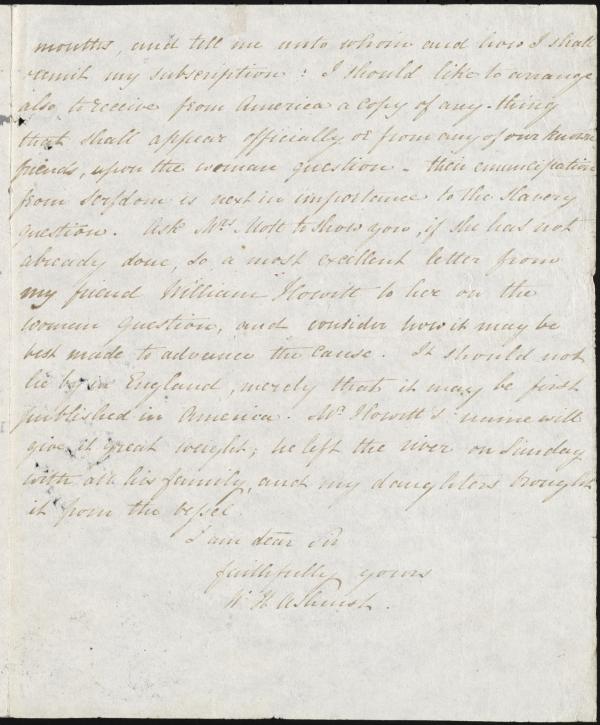 months, and tell me unto whom and how I shall
remit my subscription: I should like to arrange
also to receive from America a copy of any-thing
that shall appear officially or from any of our known
friends, upon the woman question - their emancipation
from serfdom is next in importance to the Slavery
question. Ask Mrs. Mott to show you, if she has not
already done, so a most excellent letter from
my friend William Howitt to her on the
woman question, and consider how it may be
best made to advance the cause. It should not
lie by in England, merely that it may be first
published in America. Mr. Howitt's name will
give it great weight; he left the river on Sunday
with all his family, and my daughters brought
it from the vessel.
I am dear Sir
faithfully yours
W. H. Ashurst.